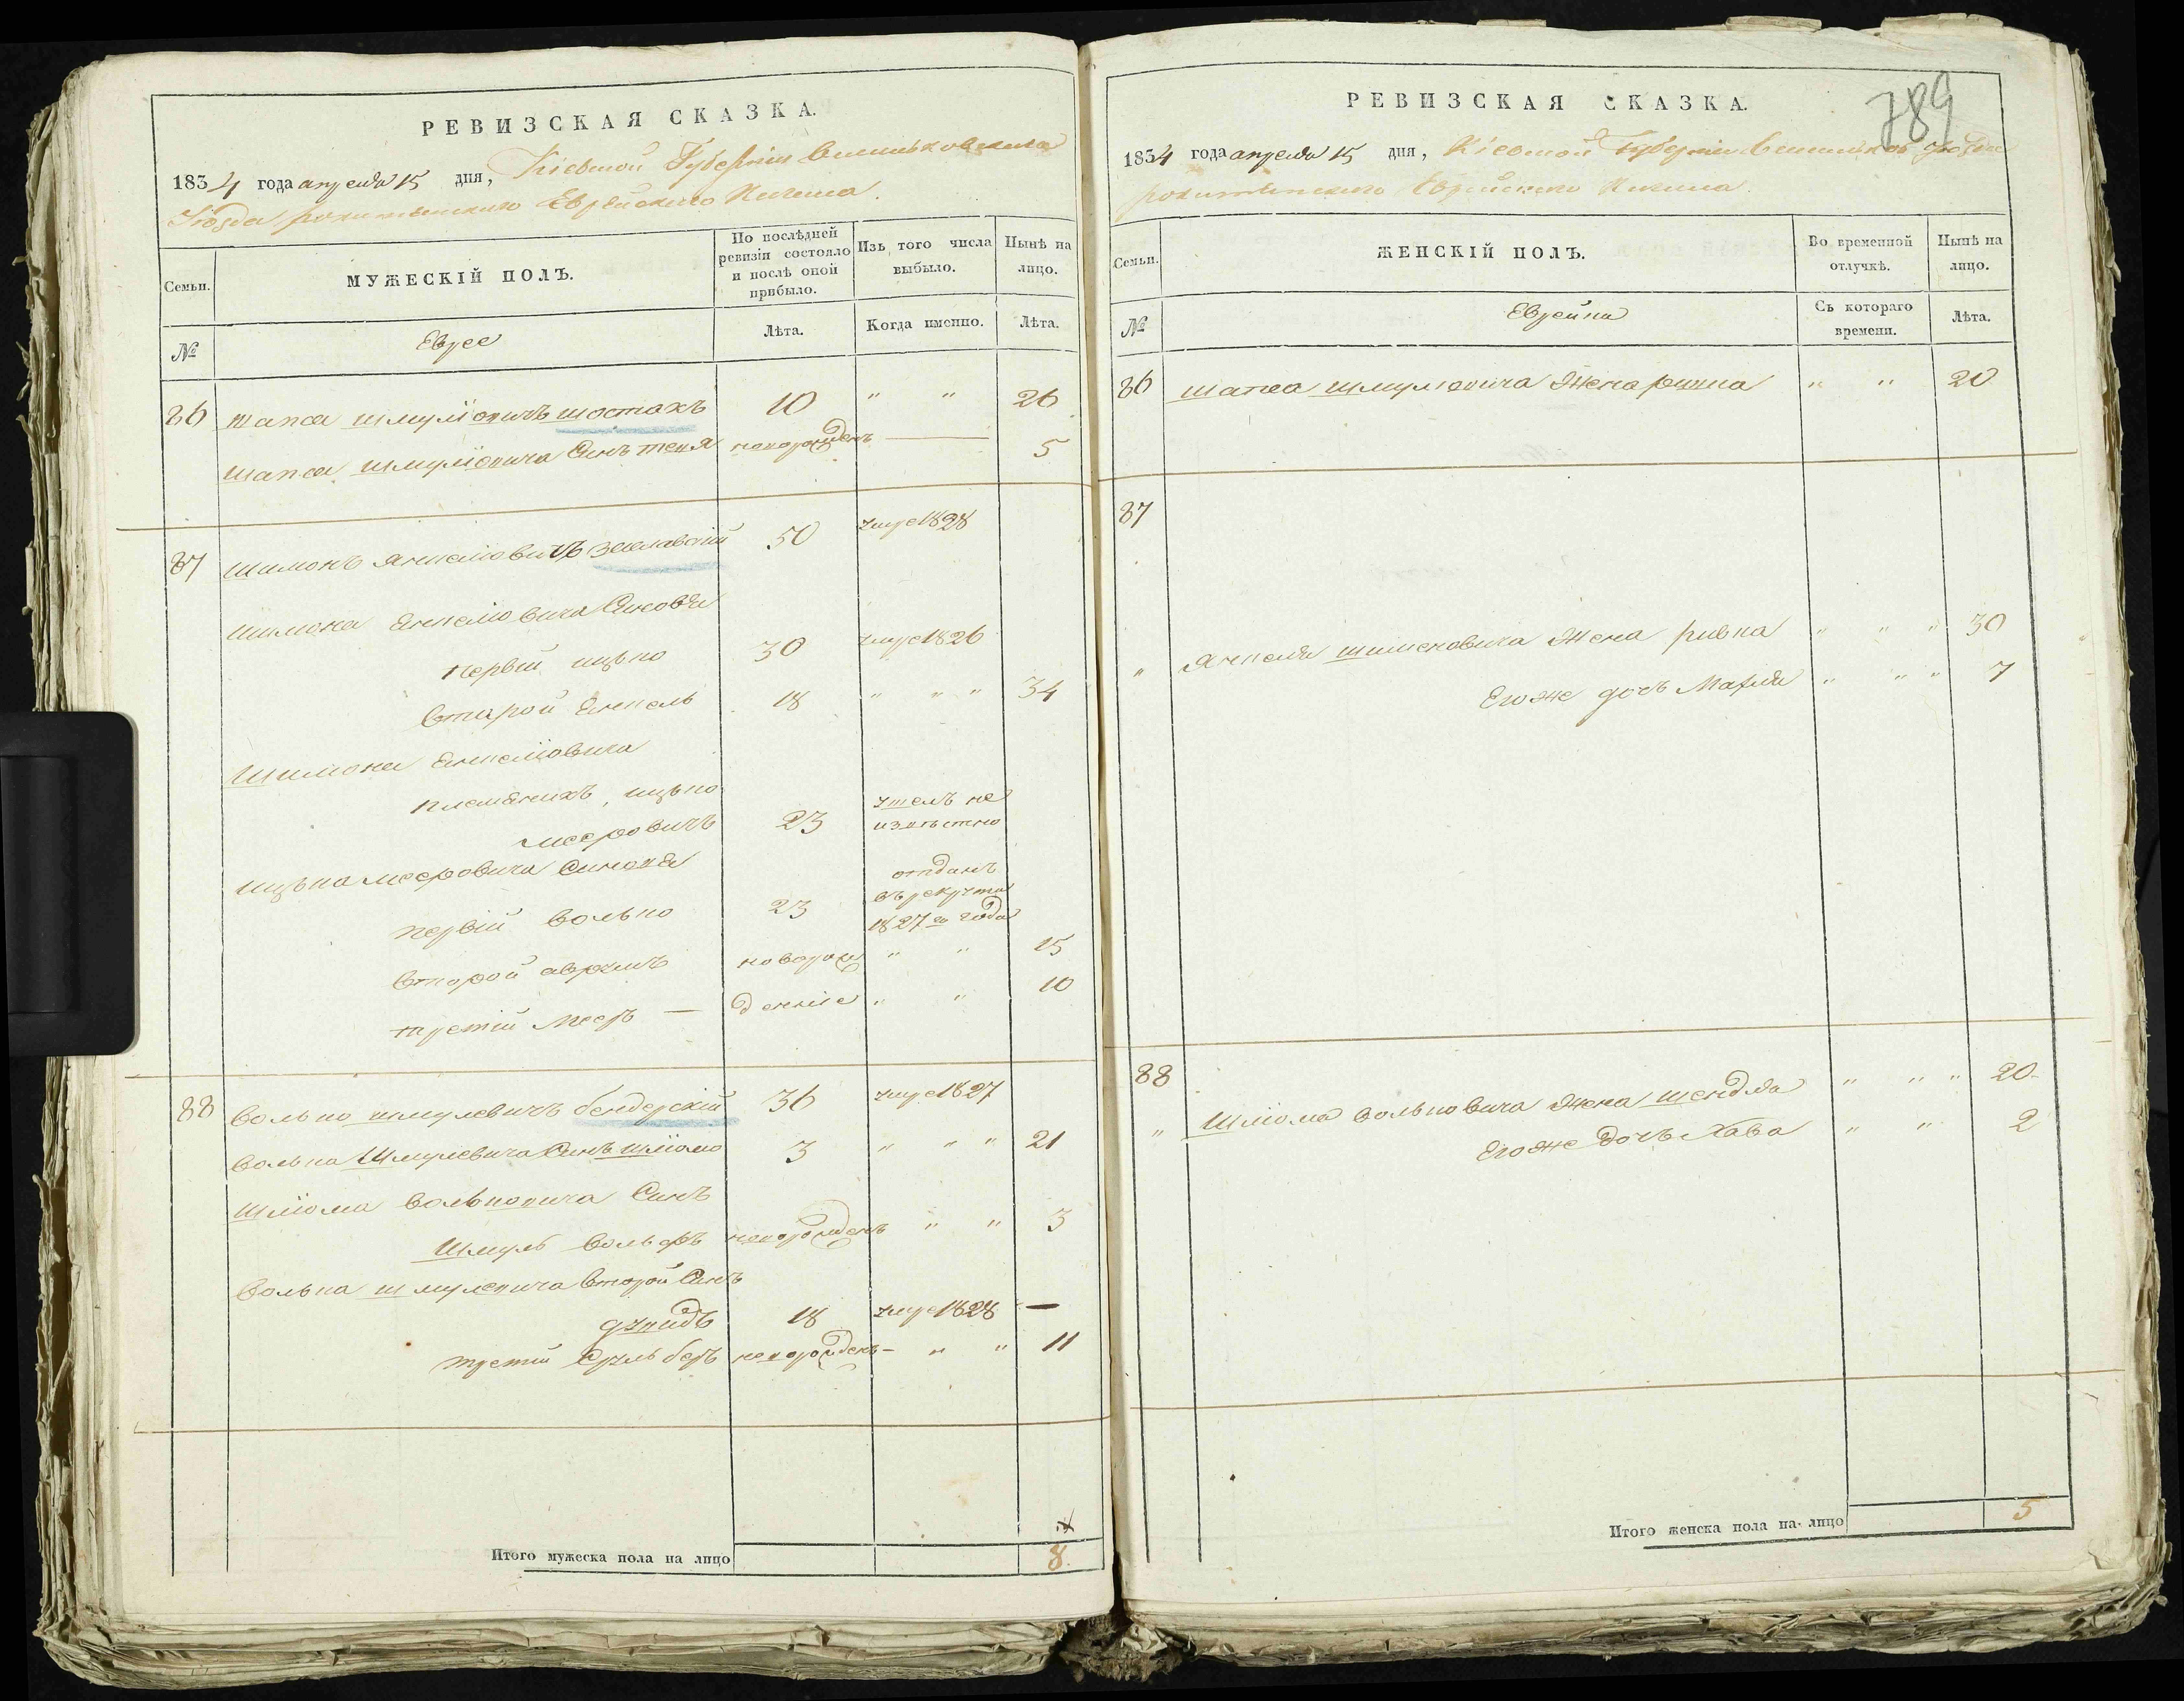 РЕВИЗСКАЯ СКАЗКА.
1834 года апреля 15 дня, Кіевской Губерніи Васильковскаго
Уѣзда рокитянскаго Еврейскаго Кагала.
Семьи.
МУЖЕСКІЙ ПОЛЪ.
По послѣдней ревизіи состояло и послѣ оной прибыло.
Изъ того числа выбыло.
Нынѣ на лицо.
№
Евреи
Лѣта.
Когда именно.
Лѣта.
86 шапса шмуліовичъ шостакъ 10 " " 26
шапса шмуліовича Синъ новорожденъ 5
87 шимонъ янкеліовичъ заславскій 50 умре 1828
шимона янкеліовича Синовя
первій ицько 30 умре 1826
второй янкель 18 " " " 34
шимона янкеліовича
племяникъ, ицько
мееровичъ 23 неизвѣстно
ицька мееровича Синовя
первій волько 23 отданъ въ рекруты 1827го года
второй аврумъ новорож " " 15
третій мееръ — денніе " " 10
88 волько шмулевичъ бендерскій 36 умре 1827
волька шмулевича Синъ шліомо 3 " " " 21
шліома вольковича Синъ
шмуль вольфъ новорожденъ " " 3
волька шмулевича второй Синъ
дувидъ 18 умре 1828 —
третій Сруль беръ новорожденъ — " " 11
Итого мужеска пола на лицо 8.
789
РЕВИЗСКАЯ СКАЗКА.
1834 года апреля 15 дня, Кіевской Губерніи Васильков уѣзда
рокитянскаго Еврейскаго Кагала.
Семьи.
ЖЕНСКІЙ ПОЛЪ.
Во временной отлучкѣ.
Нынѣ на лицо.
№
Еврейки
Съ котораго времени.
Лѣта.
86 шапса шмулиовича жена " " 20
87
" янкеля шимоновича жена ривка " " " 30
Егоже дочь Марія " " " 7
88
" шліома вольковича жена шендля " " " 20
Егоже дочь Хава " " 2
Итого женска пола на лицо 5